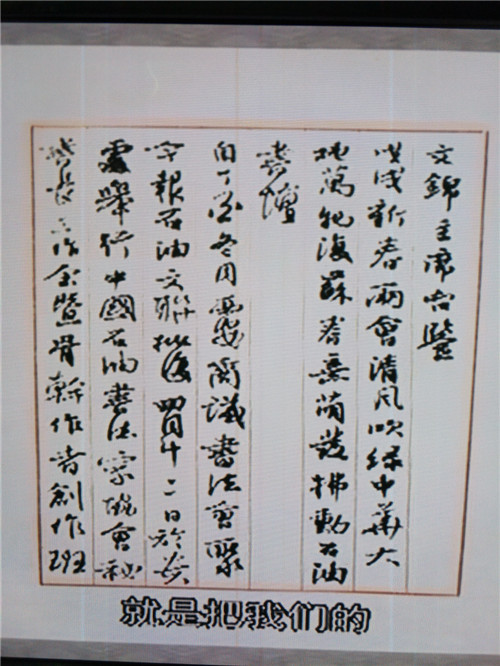 文錦主席台鑒
戊戌新春兩會清風吹綠中華大
地萬物復蘇春意萌發拂動石油
書壇
自丁酉冬月西安商議書法會聚
報石油文聯批復四月十二日於
舉行中國石油書法家協會秘
書長工作會暨骨幹作者創作班
就是把我们的